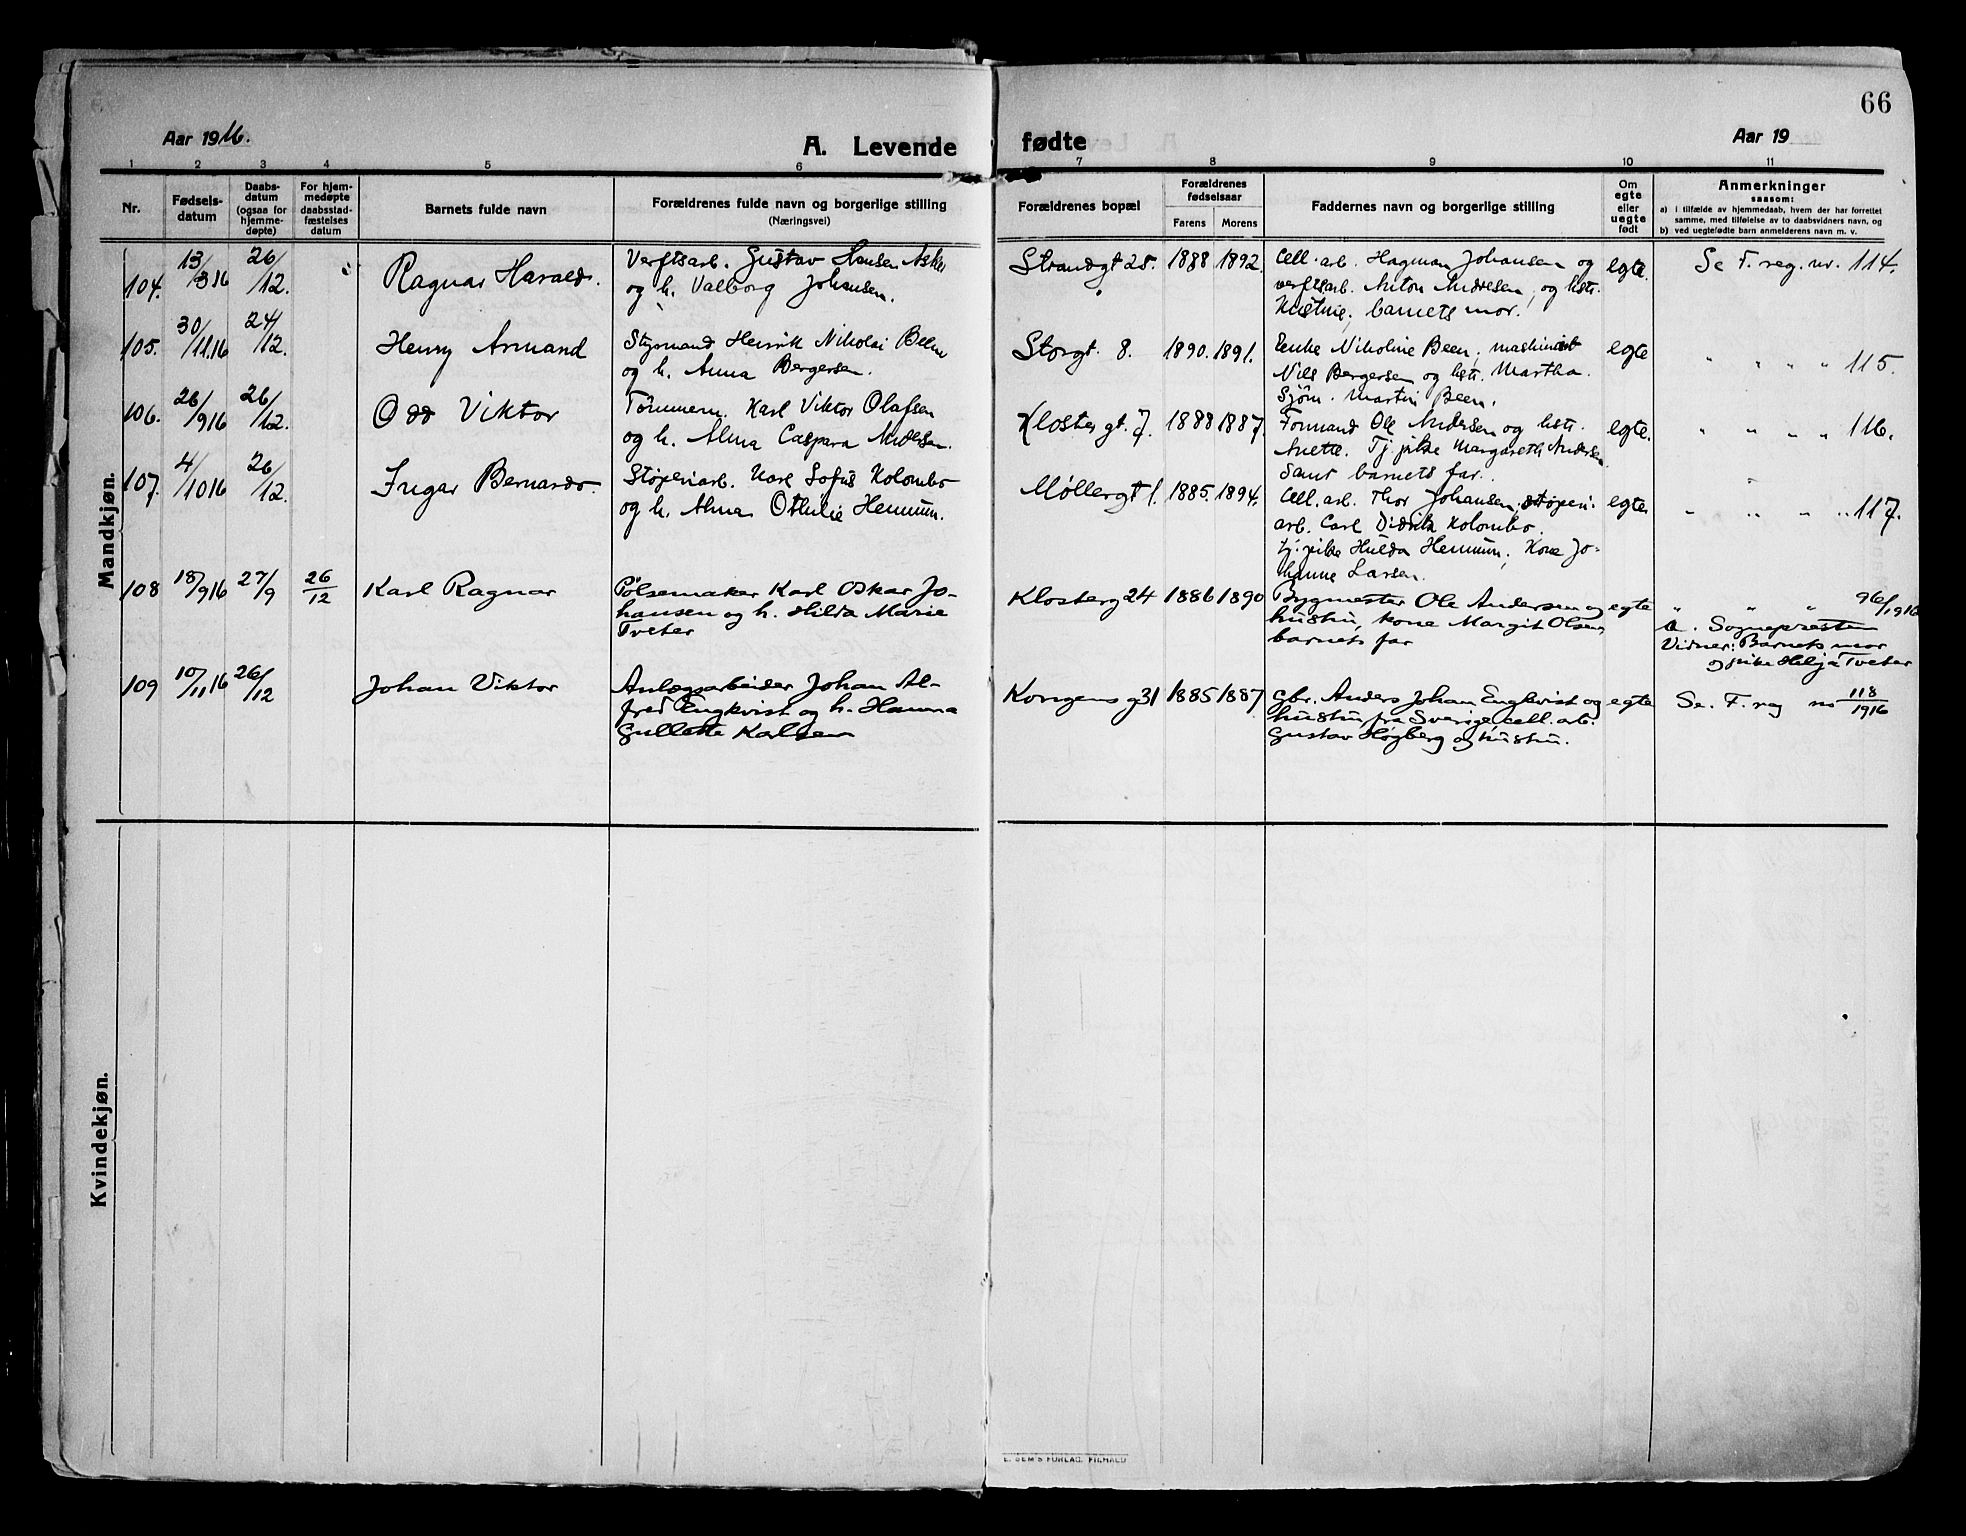 66
Aar 1916.
A. Levende fødte
Aar 19
1 2 3 4 5 6 7 8 9 10 11
Nr.
Fødsels-
datum
Daabs-
datum
(ogsaa for
hjemme-
døpte)
For hjem-
medøpte
daabsstad-
fæstelses
datum
Barnets fulde navn
Forældrenes fulde navn og borgerlige stilling
(Næringsvei)
Forældrenes bopæl
Forældrenes
fødselsaar
Farens Morens
Faddernes navn og borgerlige stilling
Om
egte
eller
uegte
født
Anmerkninger
saasom:
a) i tilfælde av hjemmedaab, hvem der har forrettet
samme, med tilføielse av to daabsvidners navn, og
b) ved uegtefødte barn anmelderens navn m. v.
Mandkjøn.
104. 13/3 16 26/12. Ragnar Harald.
Verftsarb. Gustav Hansen Asker
og h. Valborg Johansen.
Strandgt 25. 1888 1892.
Cell. arb. Hagman Johansen og
verftsarb. Anton Andresen, og hstr.
Kristine; barnets mor.
egte. Se F. reg. nr. 114.
105. 30/11 16 24/12. Henry Armand
Styrmand Henrik Nikolai Been
og h. Anna Bergersen.
Storgt. 8. 1890. 1891.
Enke Nikoline Been; maskinist
Nils Bergersen og hstr. Martha.
Sjøm. Martin Been.
egte " " " " 115.
106. 26/9 16 26/12. Odd Viktor
Tømmerm. Karl Viktor Olafsen
og h. Alma Caspara Andersen.
Klostergt. 7. 1888 1887.
Formand Ole Andersen og hstr.
Anette. Tj. pike Margareth Andersen.
Samt barnets far.
egte. " " " " 116.
107. 4/10 16 26/12. Ingar Bernardo.
Støperiarb. Karl Sofus Kolombo
og h. Alma Othilie Hemum.
Møllergt 1. 1885. 1894.
Cell. arb. Thor Johansen, støperi-
arb. Carl Didrik Kolombo.
tj. pike Hulda Hemum, Kone Jo-
hanne Larsen.
egte " " " " 117.
108 18/9 16 27/9 26/12 Karl Ragnar
Pølsemaker Karl Oskar Jo-
hansen og h. Hilda Marie
Tveter
Klosterg 24 1886 1890
Bygmester Ole Andersen og
hustru, kone Margit Olsen,
barnets far
egte " " " 96/1916
a. Sognepresten
Vidner: Barnets mor
og pike Helja Tveter
109 10/11 16 26/12 Johan Viktor
Anlægsarbeider Johan Al-
fred Engkvist og h. Hanna
Gullette Karlsen
Kongensg 31 1885 1887
Gbr. Anders Johan Engkvist og
hustru fra Sverige, cell. arb.
Gustav Høgberg og hustru.
egte Se. F. reg no 118/1916
Kvindekjøn.
E. SEM'S FORLAG, FR.HALD